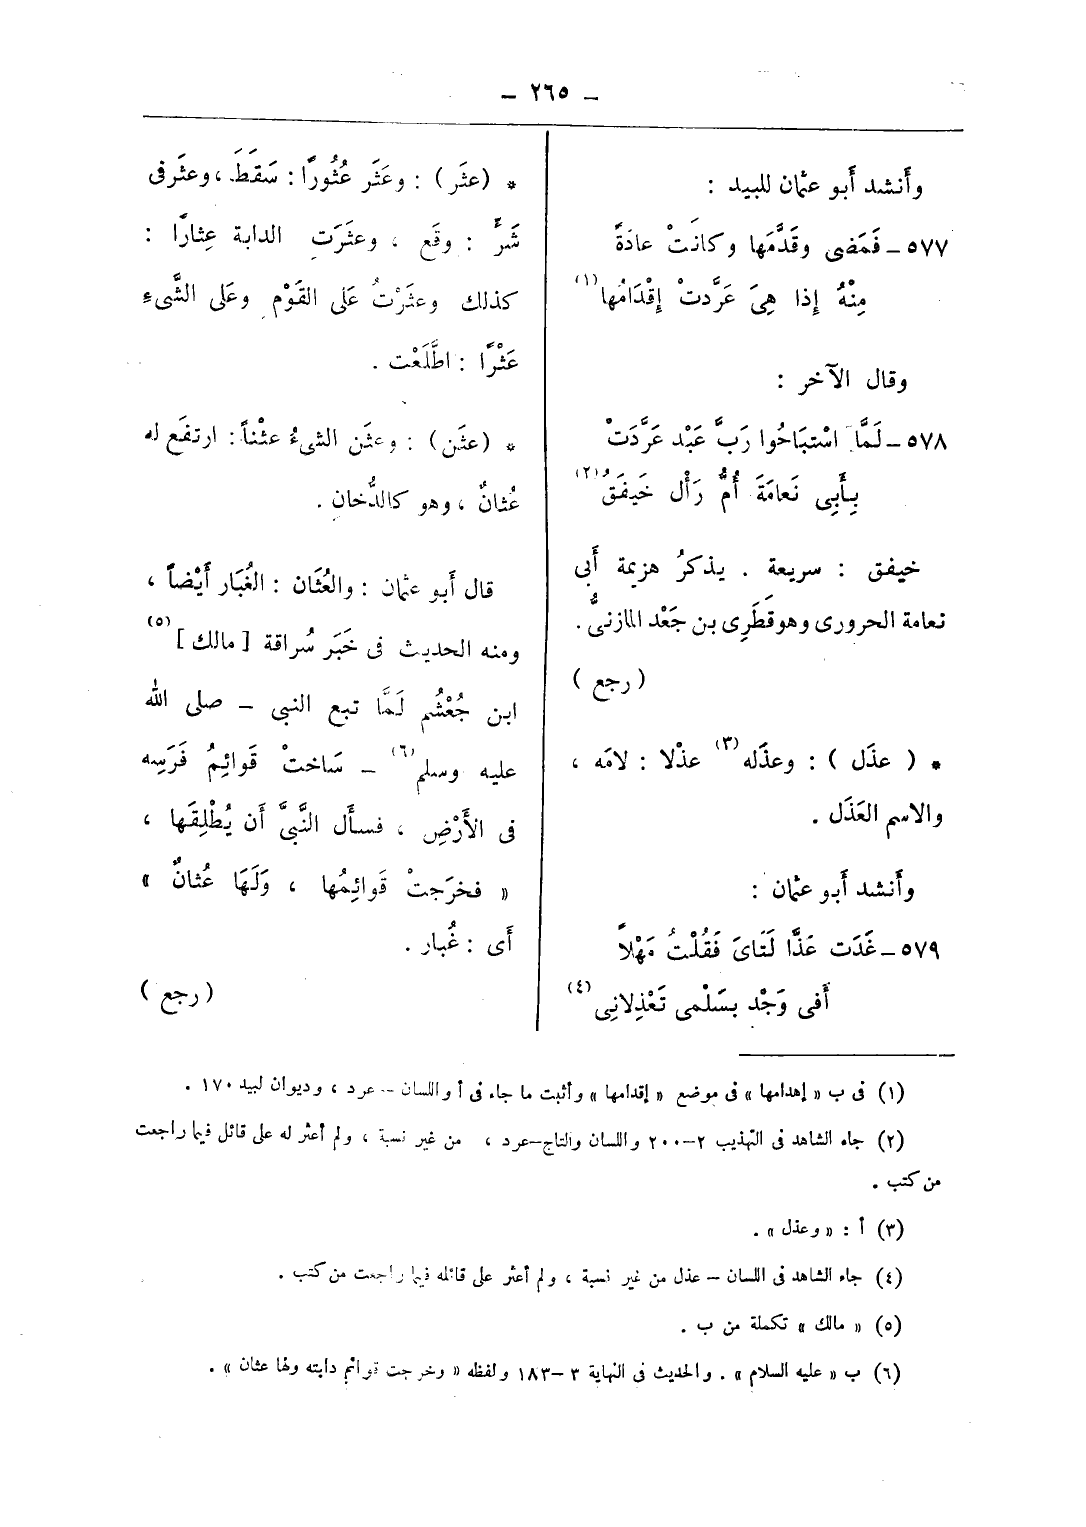 — ٢٦٥ —
وأَنشد أَبو عثمان للبيد :
٥٧٧ – فَمَضى وقَدَّمَها وكانَتْ عادَةً
مِنْهُ إِذا هِىَ عَرَّدتْ إِقْدَامُها (١)
وقال الآخر :
٥٧٨ – لَمَّا اسْتبَاحُوا رَبَّ عَبْد عَرَّدَتْ
بِأَبِى نَعامَةَ أُمُّ رَأْل خَيفَقُ (٢)
خيفق : سريعة . يذكرُ هزيمة أَبى
نعامة الحرورى وهو قَطَرِى بن جَعْد المازنىُّ .
( رجع )
* ( عذَل ) : وعذَله (٣) عذْلا : لامَه ،
والاسم العَذَل .
وأَنشد أَبو عثمان :
٥٧٩ – غَدَت عَذَّا لَتَاىَ فَقُلْتُ مَهْلاً
أَفى وَجْد بسَلْمى تَعْذِلانِى (٤)
* (عثَر) : وعَثَر عُثُورًا : سَقَطَ ، وعثَر فى
شَرًّ : وقَع ، وعثَرَت الدابة عِثارًا :
كذلك وعثَرْتُ عَلى القَوْم وعَلى الشَّىءِ
عَثْرًا : اطَّلَعْت .
* (عثَن) : وعثَن الشىءُ عثْناً : ارتفَع له
عُثانٌ ، وهو كالدُّخان .
قال أَبو عثمان : والعُثَان : الغُبَار أَيْضاً ،
ومنه الحديث فى خَبَر سُراقة [ مالك ] (٥)
ابن جُعْشُم لَمَّا تبع النبى – صلى الله
عليه وسلم (٦) – سَاختْ قَوائِمُ فَرَسِه
فى الأَرْضِ ، فسأَل النَّبىَّ أَن يُطْلِقَها ،
« فخرَجتْ قَوائِمُها ، وَلَهَا عُثانٌ »
أَى : غُبار .
( رجع )
(١) فى ب « إهدامها » فى موضع « إقدامها » وأثبت ما جاء فى أ واللسان – عرد ، وديوان لبيد ١٧٠ .
(٢) جاء الشاهد فى التهذيب ٢–٢٠٠ واللسان والتاج–عرد ، من غير نسبة ، ولم أعثر له على قائل فيما راجعت
من كتب .
(٣) أ : « وعذل » .
(٤) جاء الشاهد فى اللسان – عذل من غير نسبة ، ولم أعثر على قائله فيما راجعت من كتب .
(٥) « مالك » تكملة من ب .
(٦) ب « عليه السلام » . والحديث فى النهاية ٣–١٨٣ ولفظه « وخرجت قوائم دابته ولها عثان » .